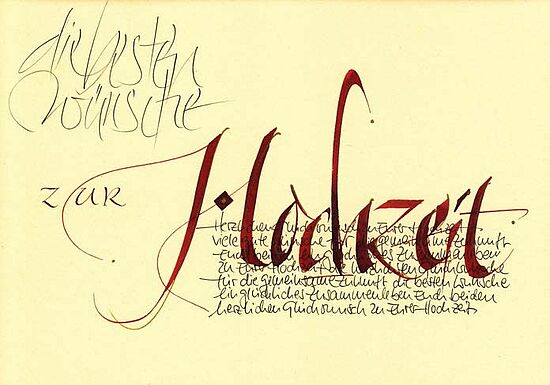 die besten
Wünsche
zur
Hochzeit
Herzlichen Glückwunsch zu Eurer Hochzeit
viele gute Wünsche für die gemeinsame Zukunft
Euch beiden ein glückliches Zusammenleben
zu Eurer Hochzeit die
für die gemeinsame Zukunft die besten Wünsche
Ein glückliches Zusammenleben Euch beiden
herzlichen Glückwunsch zu Eurer Hochzeit